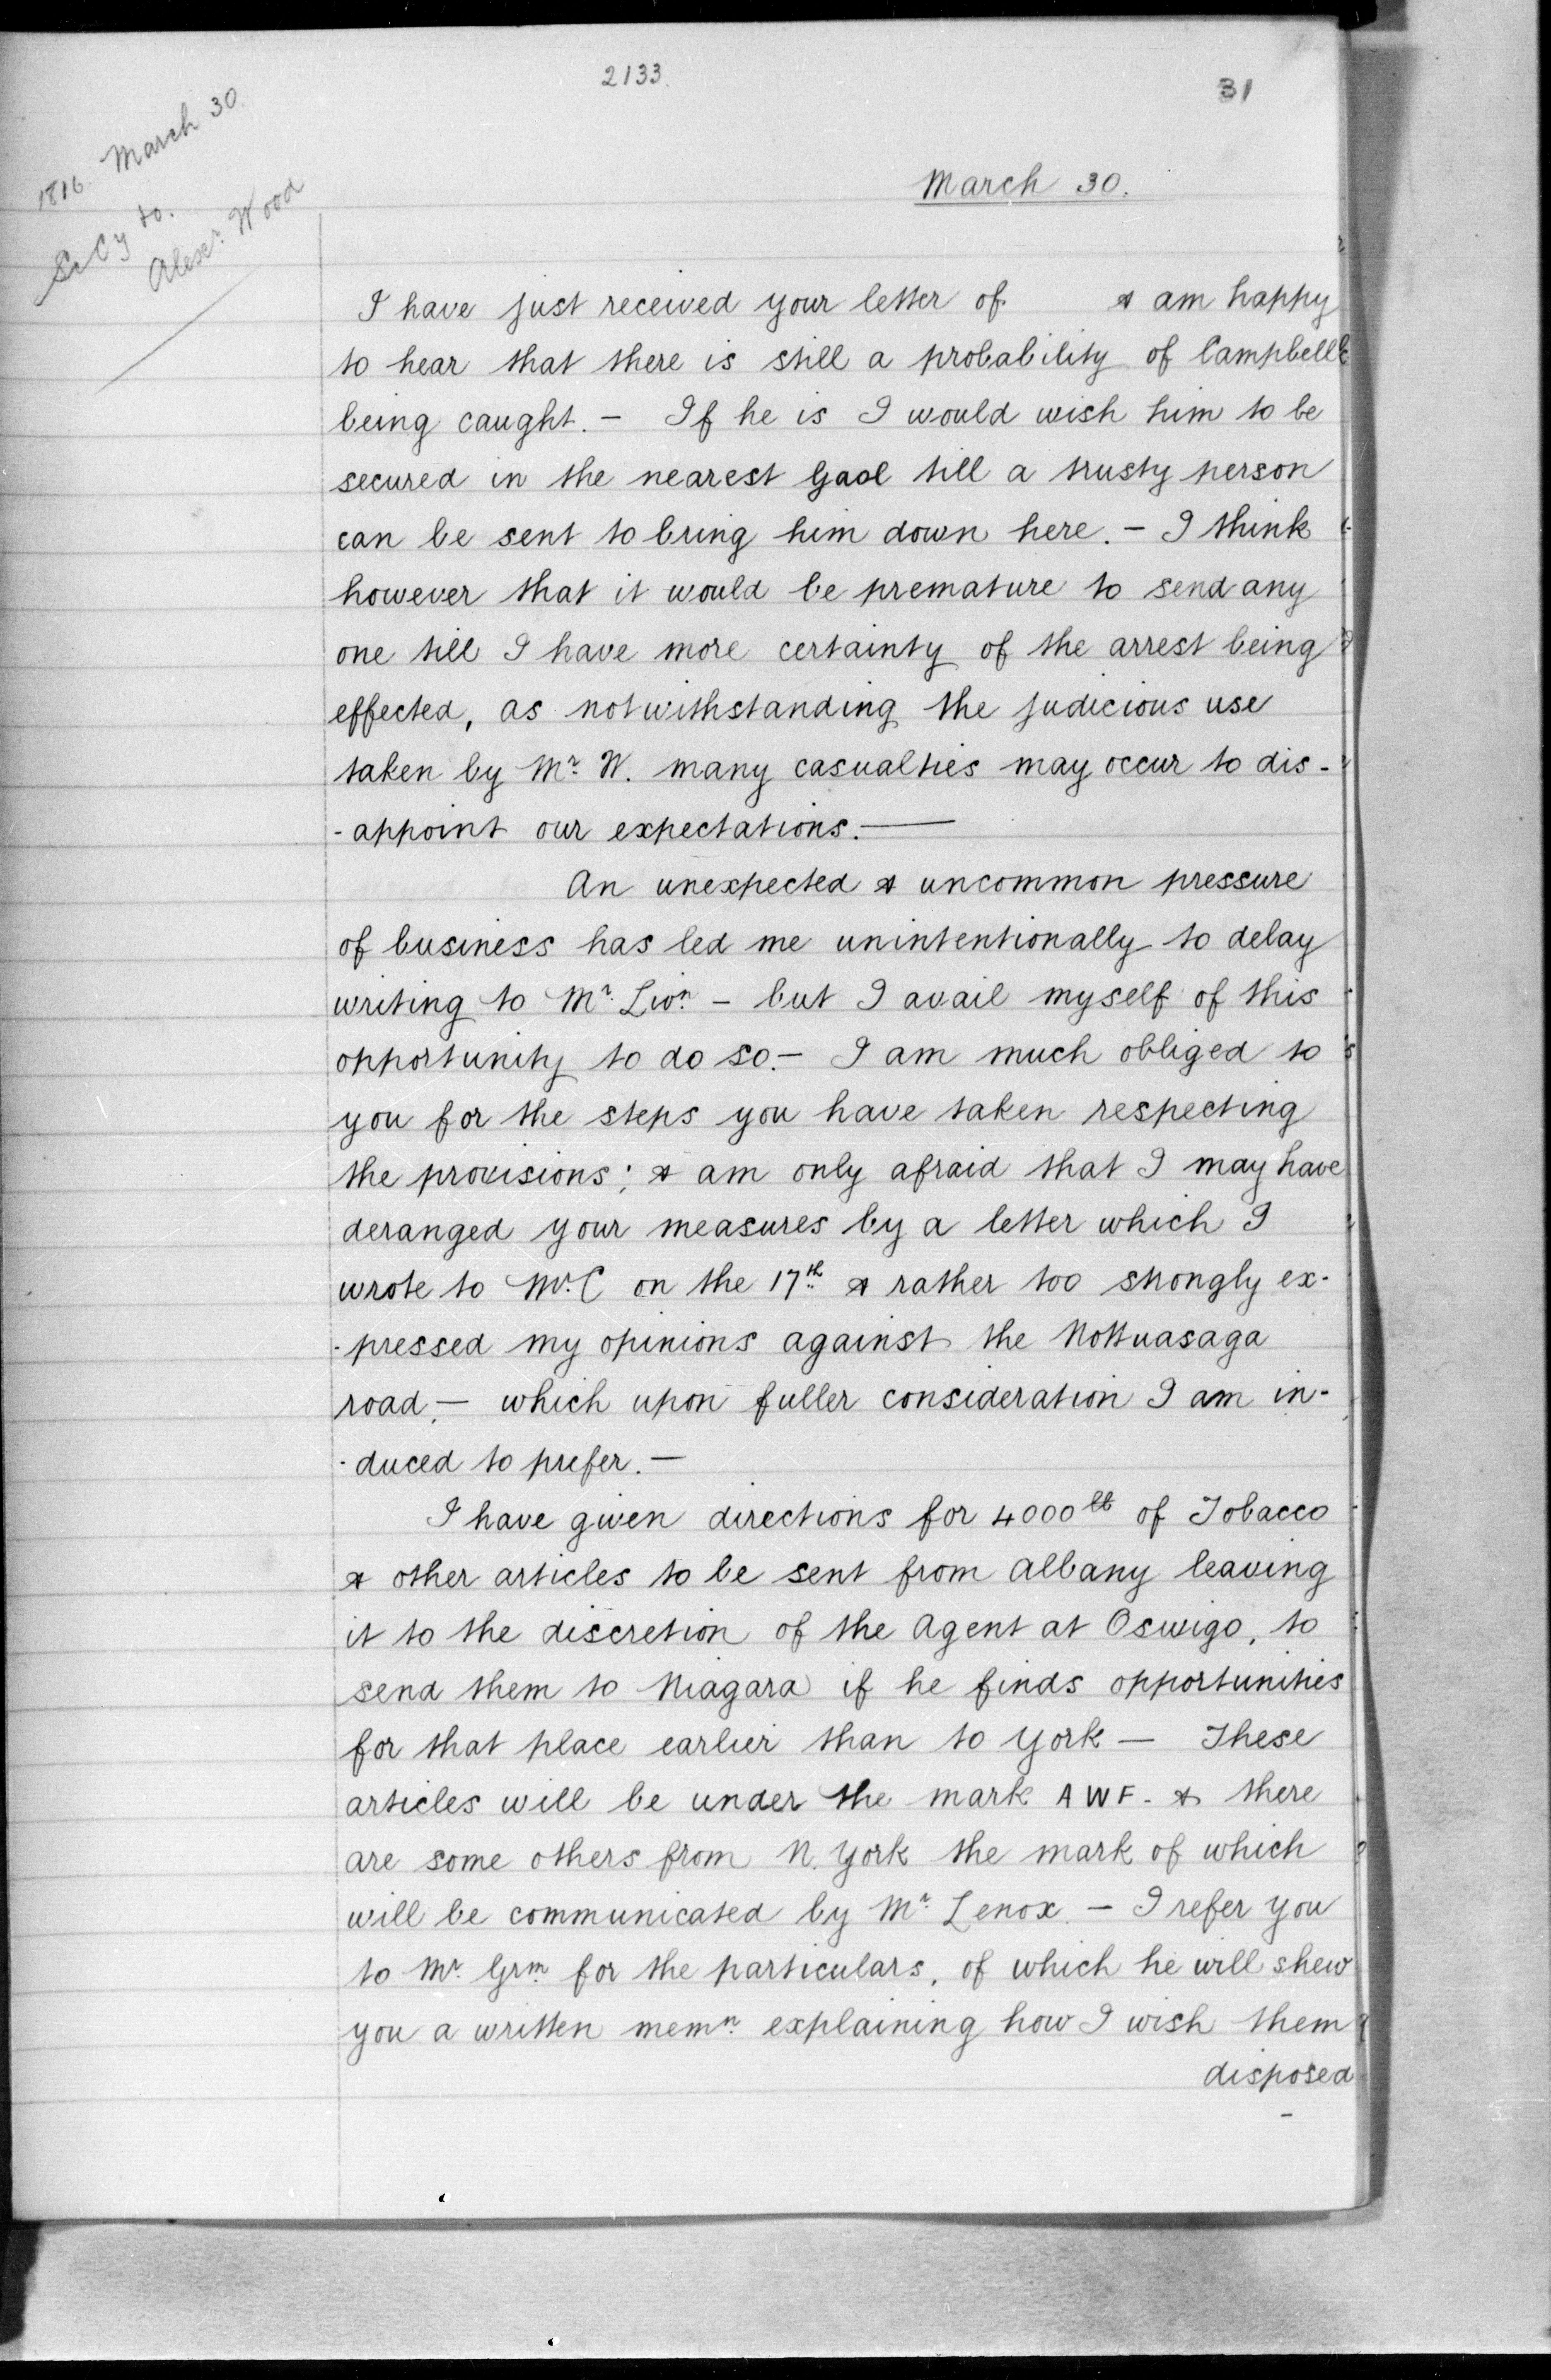 2133.
31
1816. March 30.
to.
Alexr. Wood
March 30.
I have just received your letter of & am happy
to hear that there is still a probability of Campbell
being caught. – If he is I would wish him to be
secured in the nearest Gaol till a trusty person
can be sent to bring him down here. – I think
however that it would be premature to send any
one till I have more certainty of the arrest being
effected, as notwithstanding the judicious use
taken by Mr. W. many casualties may occur to dis-
-appoint our expectations. —
An unexpected & uncommon pressure
of business has led me unintentionally to delay
writing to Mr. Livn. – but I avail myself of this
opportunity to do so. – I am much obliged to
you for the steps you have taken respecting
the provisions; & am only afraid that I may have
deranged your measures by a letter which I
wrote to Mr. C on the 17th & rather too strongly ex-
-pressed my opinions against the Nottuasaga
road, – which upon fuller consideration I am in-
-duced to prefer. –
I have given directions for 4000 lb of Tobacco
& other articles to be sent from Albany leaving
it to the discretion of the Agent at Oswigo, to
send them to Niagara if he finds opportunities
for that place earlier than to York – These
articles will be under the mark AWF. & there
are some others from N. York the mark of which
will be communicated by Mr. Lenox. – I refer you
to Mr. Grm. for the particulars, of which he will shew
you a written memn. explaining how I wish them
disposed